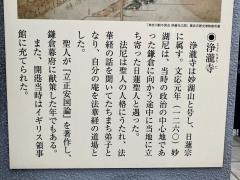 ●浄瀧寺
浄瀧寺は妙湖山と号し、日蓮宗
に属す。文応元年（一二六〇）妙
湖尼は、当時の政治の中心地であ
った鎌倉に向かう途中に当地に立
ち寄った日蓮聖人と遇った。
法尼は聖人の人格にうたれ、法
華経の話を聞いてたちまち弟子と
なり、自分の庵を法華経の道場と
した。
聖人が「立正安国論」を著作し、
鎌倉幕府に献策した年でもある。
また、開港当時はイギリス領事
館に充てられた。